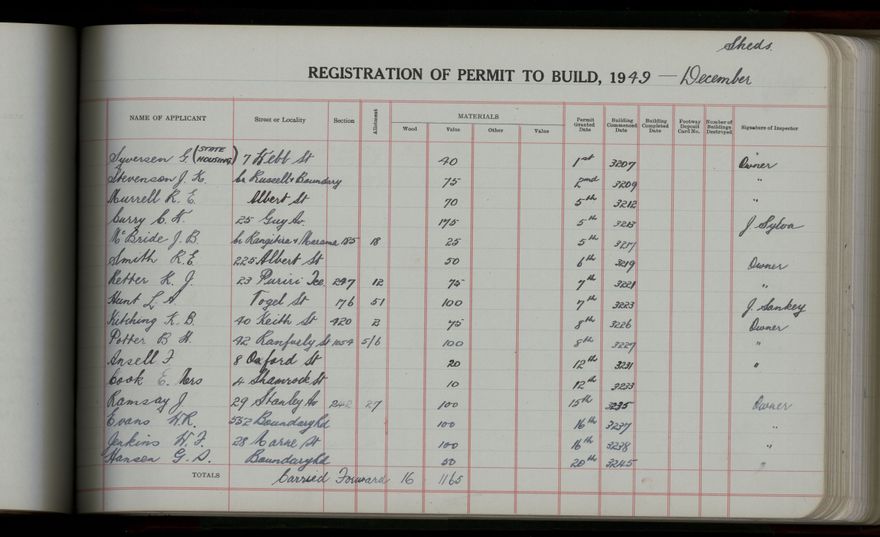 Sheds.
REGISTRATION OF PERMIT TO BUILD, 1949 — December
NAME OF APPLICANT Street or Locality Section Allotment MATERIALS Permit Granted Date Building Commenced Date Building Completed Date Footway Deposit Card No. Number of Buildings Destroyed Signature of Inspector
Wood Value Other Value
Syversen G. (STATE HOUSING) 7 Kebb St 40 1st 3207 Owner
Stevenson J. K. Cr Russell & Boundary 75 2nd 3209 "
Murrell R. E. Albert St 70 5th 3212 "
Curry C. K. 25 Guy Av. 175 5th 3213 J Sylva
McBride J. B. Cr Rangitira & Marama 185 18 25 5th 3217
Smith R. E. 225 Albert St 50 6th 3219 Owner
Retter K. J. 23 Puriri Tce 297 12 75 7th 3221 "
Hunt L A Fogel St 176 51 100 7th 3223 J. Sankey
Kitching K. B. 40 Keith St 420 2 75 8th 3226 Owner
Potter B H. 42 Ranfurly St 1054 5/6 100 8th 3227 "
Ansell F 8 Oxford St 20 12th 3231 "
Cook E. Mrs 4 Shamrock St 10 12th 3233
Ramsay J 29 Stanley Av 242 27 100 15th 3235 Owner
Evans W.R. 552 Boundary Rd 100 16th 3237 "
Jenkins W. F. 28 Carne St 100 16th 3238 "
Hansen G. D. Boundary Rd 50 20th 3245 "
TOTALS Carried Forward 16 1165